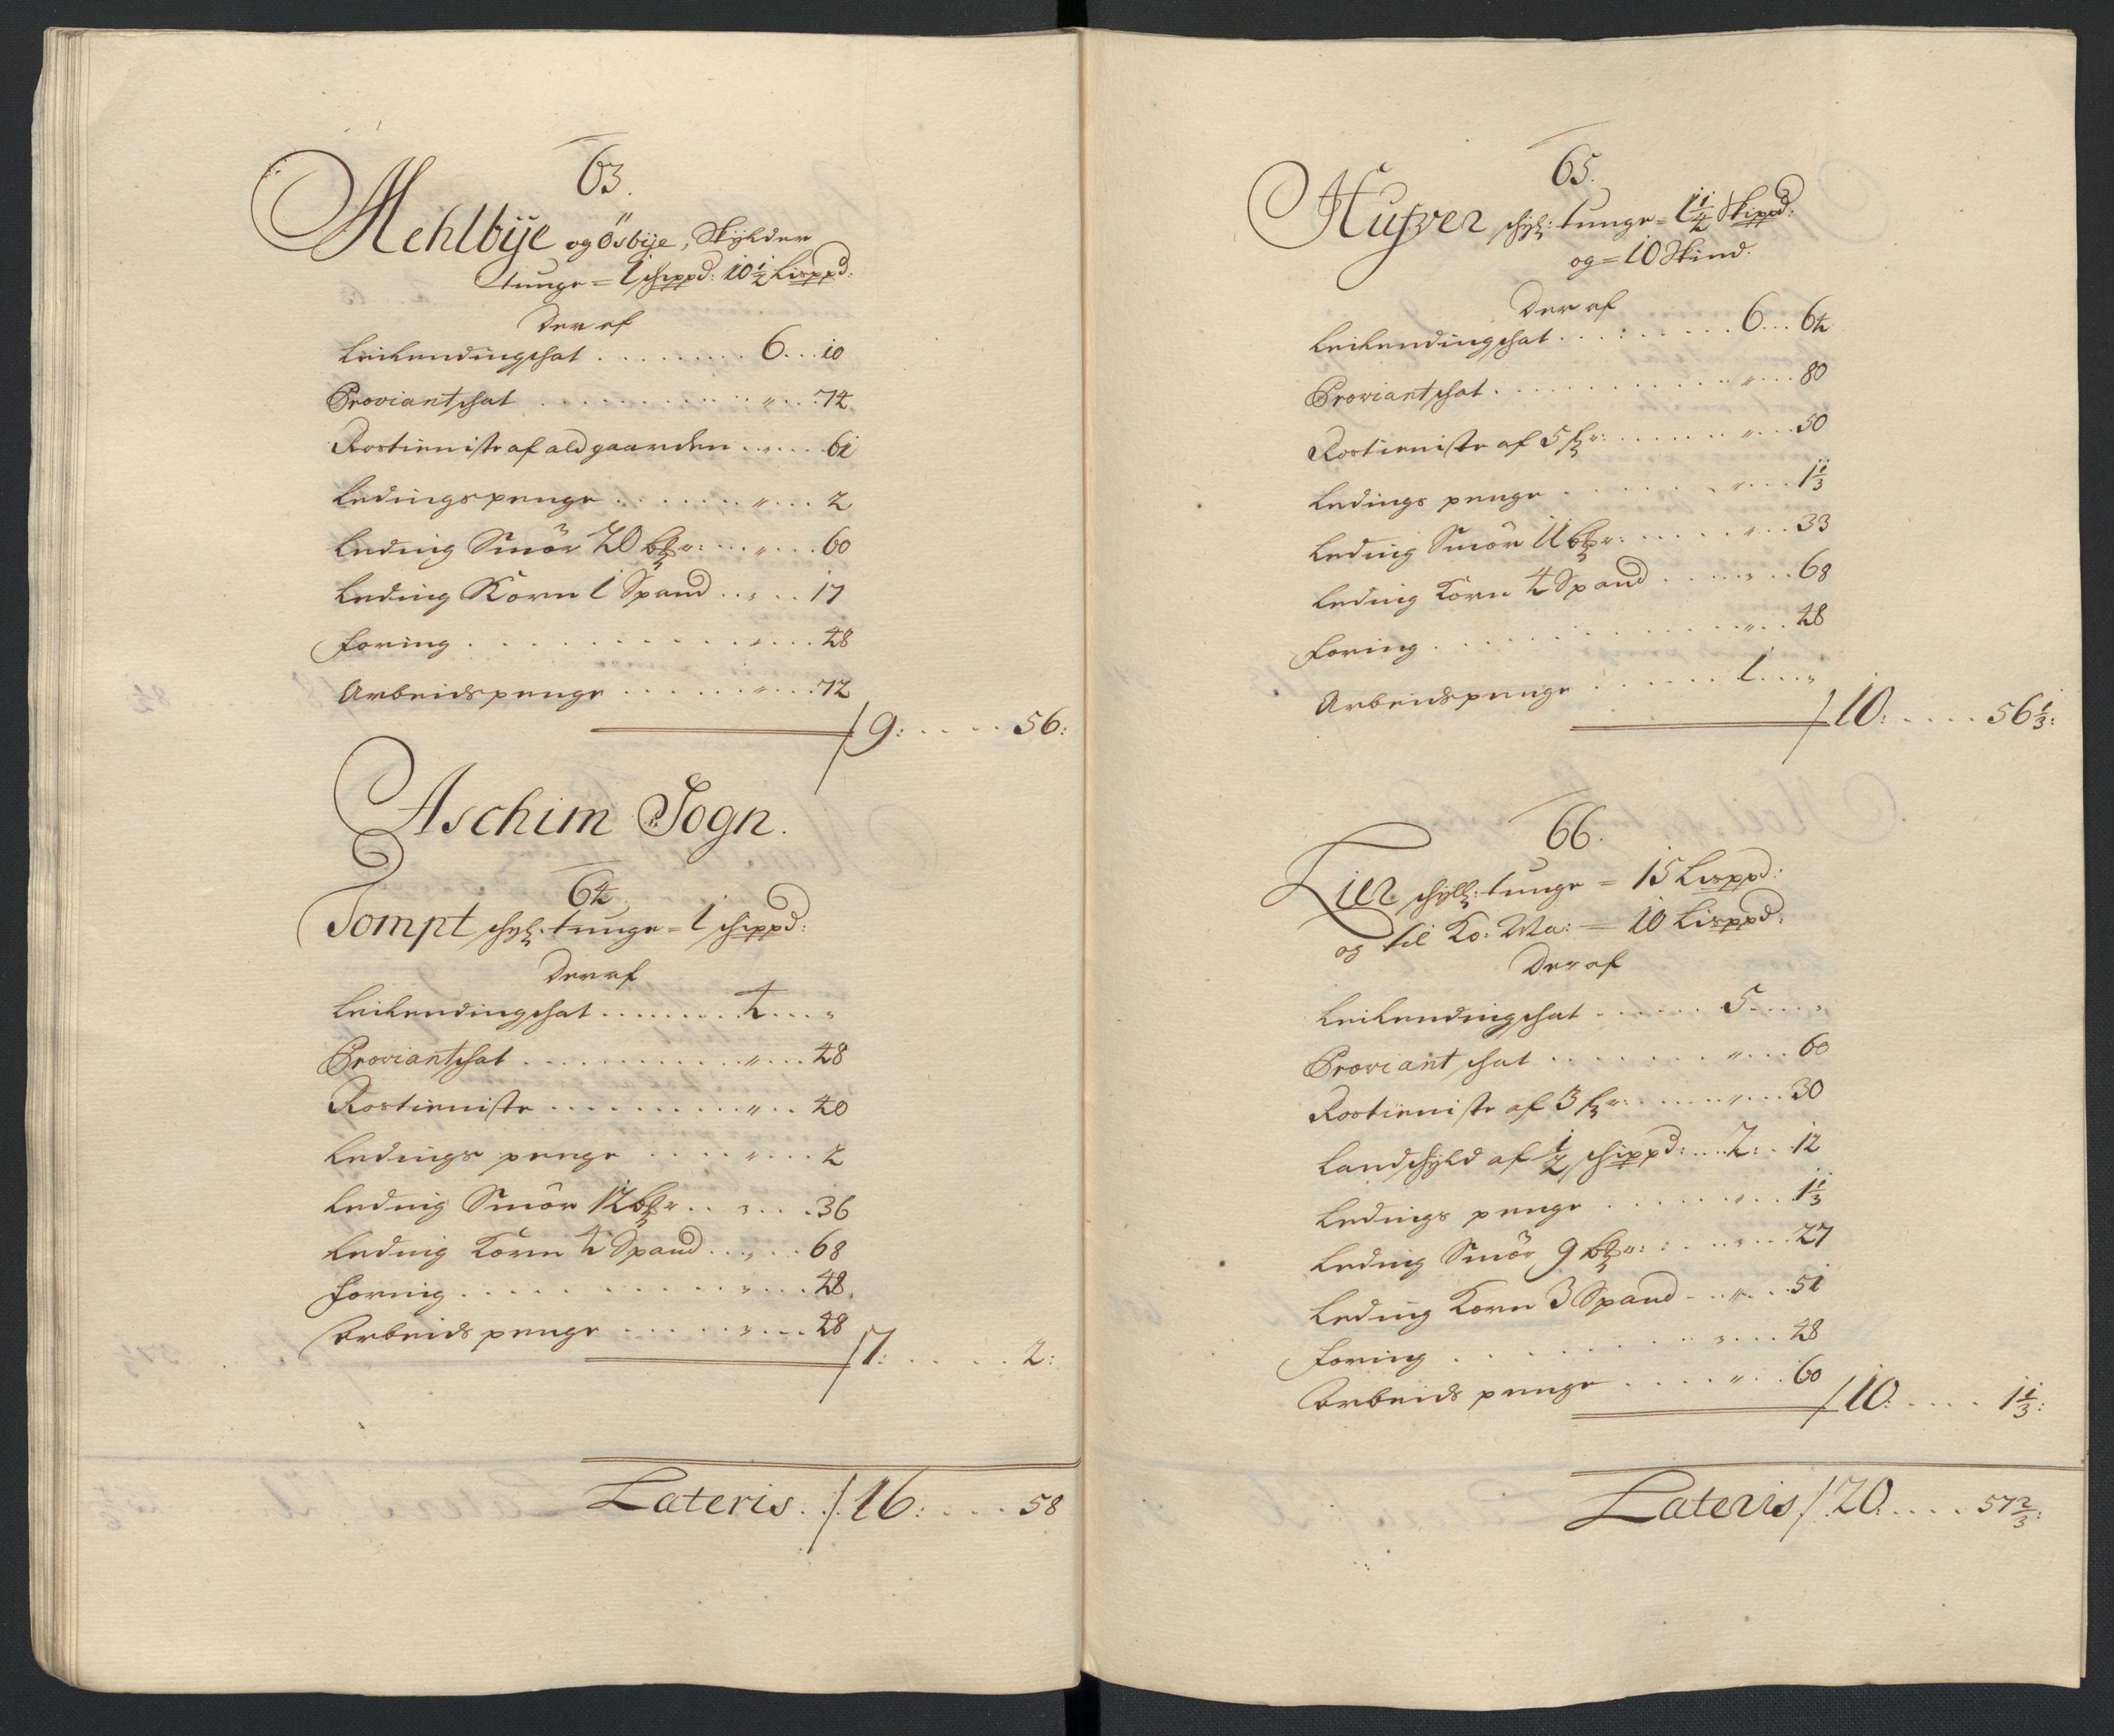 63.
Mehlbÿe og Ösbÿe, Skÿlder
tunge = 1 schippd: 10 1/2 Lisppd:
Der af
Leilendingschat . . . . . . . . 6 . . . 10
Proviantschat . . . . . . . . . . " . . . 74
Rostieniste af ald gaarden . . " . . . 61
Ledingspenge . . . . . . . " . . . 2
Leding Smör 20 bßr: . . . " . . . 60
Leding Korn 1 Spand . . " . . 17
Foring . . . . . . . . . . . . " . . . 48
Arbeidspenge . . . . . . " . . . 72
/ 9: . . . . 56:
Aschim Sogn.
64
Tompt schÿl: tunge = 1 schippd:
Der af
Leilendingschat . . . . . . . . 4 . . . "
Proviantschat . . . . . . . . . . " . . . 48
Rostieniste . . . . . . . . . . " . . 40
Ledings penge . . . . " . . . 2
Leding Smör 12 bßr . . " . . . 36
Leding Korn 4 Spand . . " . . 68
Foring . . . . . . . . . . . " . . . 48.
Arbeids penge . . . . . " . . . 48
/ 7: . . . . . 2:
Lateris . . / 16: . . . . 58
65.
Hufver schÿl: tunge = 1 1/4 Skippd:
og = 10 Skind.
Der af
Leilendingschat . . . : . . . . . 6 . . . 64
Proviantschat . . . . . . . . . . . " . . . 80
Rostieniste af 5 fßr: . . . . . . " . . . 50
Ledings penge . . . . . . . " . . . 1 1/3
Leding Smör 11 bßr: . . . . . " . . . 33
Leding Korn 4 Spand . . . . " . . 68
Foring . . . . . . . . . . . . . " . . 48
Arbeidspenge . . . . . . 1 . . . "
/ 10: . . . . 56 1/3:
66.
Lier schÿll: tunge = 15 Lisppd:
og til Ko: Ma: = 10 Lisppd:
Der af
Leilendingschat . . . . . . 5 . . . . "
Proviant schat . . . . . . . " . . . 60
Rostieniste af 3 fßr: . . . . . " . . . 30
Landschÿld af 1/2 schippd: . . . 2: . 12
Ledings penge . . . . . . " . . . 1 1/3
Leding Smör 9 bßr: : . . . " . . . 27
Leding Korn 3 Spand - . . " . . 51
Foring . . . . . . . . " . . . 48
Arbeids penge . . . . " . . 60
/ 10: . . . . 1 1/3:
Lateris / 20 . . . . 57 2/3: